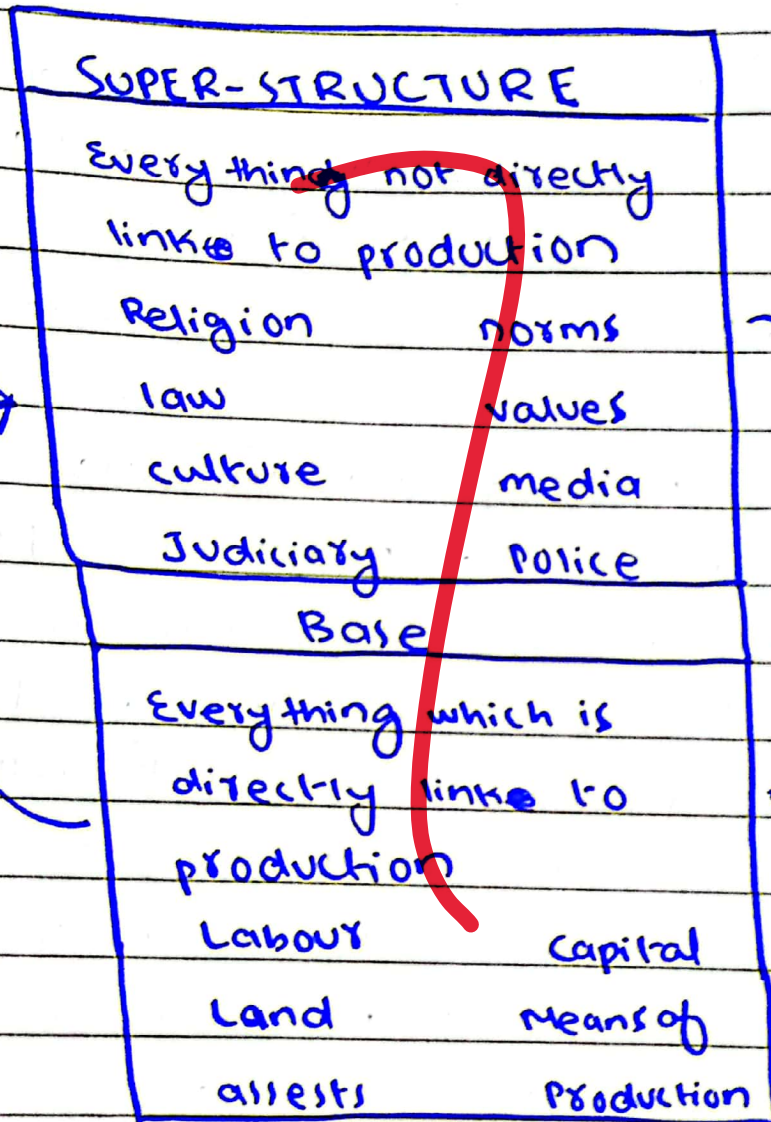 SUPER-STRUCTURE
Everything not directly
link to production
Religion norms
law values
culture media
Judiciary Police
Base
Everything which is
directly link to
production
Labour Capital
Land Means of
assests Production